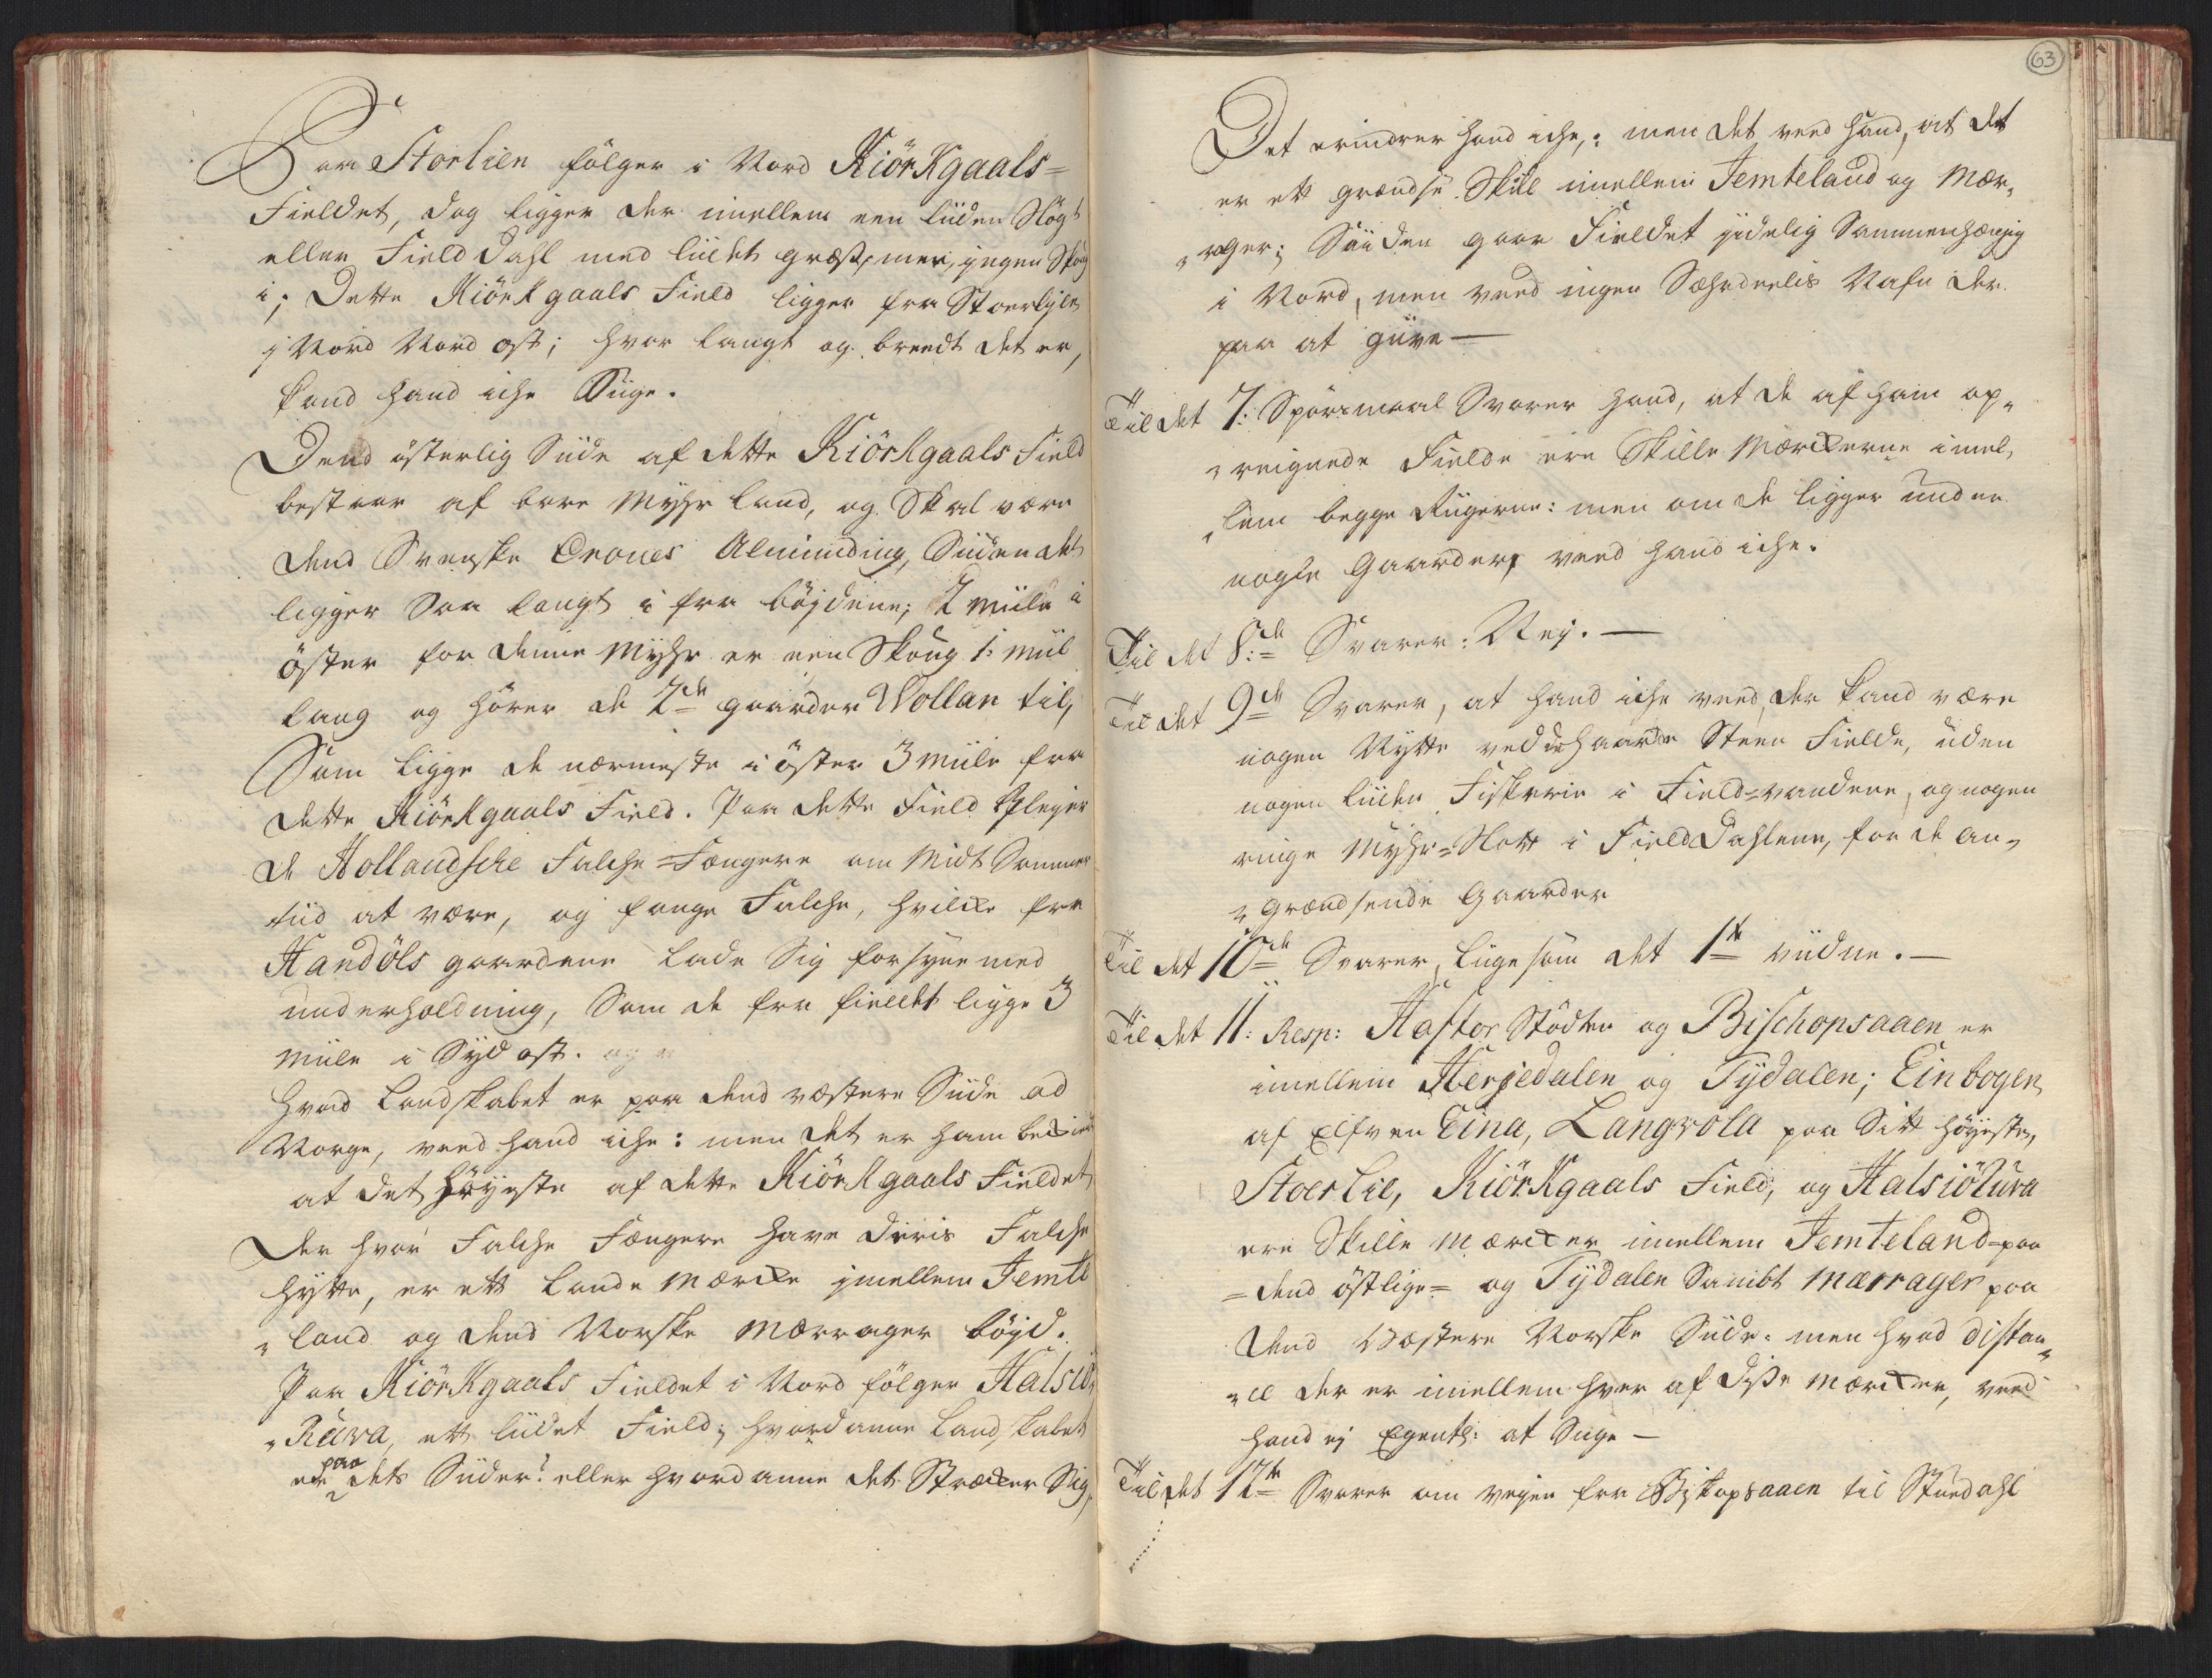 Paa Storlien fölger i Nord Kiörkgaals=
Fieldet, dog ligger der imellem een liiden Slögt
eller Field Dahl med liidet græs, men ingen Skoug
i; Dette Kiörkgaals Field ligger fra Stoerlien
i Nord Nord ost; hvor langt og breedt det er,
kand hand iche Siige.
Dend österlig Siide af dette Kiörkgaals Field
bestaar af bare Myhr land, og Skal være
dend Svenske Crones Alminding, Siiden det
ligger Saa langt i fra böjdene; 2 miile i
öster for denne Myhr er een Skoug 1: miil
lang og hörer de 2de gaarder Wollan til,
Som ligge de nærmeste i öster 3 miile fra
dette Kiörkgaals Field. Paa dette Field Pleyer
de Hollandsche Falche=Fængere om Midt Sommer
tiid at være, og fange Falche, hvilcke fra
Handöls gaardene lade Sig forsyne med
underholdning, Som de fra fieldet ligge 3
miile i Syd ost.
Hvad Landskabet er paa dend væstere Siide ad
Norge, veed hand iche: men det er ham bekiendt
at det höyeste af dette Kiörkgaals Fieldet,
der hvor Falche Fængere have deris Falche
hytte, er ett Lande mærcke imellem Jemte
„land og dend Norske Mærrager böyd.
Paa Kiörkgaals Fieldet i Nord fölger Halsiö„
„Rúwa, ett liidet Field; hvordanne Landskabet
er paa dets Siider: eller hvordanne det Strecker Sig,
63
Det erindrer hand iche,: men det veed hand, at det
er ett grændse Skill imellem Jemteland og Mær„
„ager; Siiden gaar Fieldet jidelig Sammenhængig
i Nord, men veed ingen Sæhrdeelis Nafn der
paa at giive —
Til det 7: Spörsmaal Svarer hand, at de af ham op„
„reignede Fielde ere Skille Mærckerne imel„
„lem begge Riigerne: men om de ligger under
nogle Gaarder, veed hand iche.
Til det 8:de Svarer: Nej. —
Til det 9de Svarer, at hand iche veed, der kand være
nogen Nytte ved de haarde Steen Fielde, uden
nogen liiden Fiskerie i Field=vandene, og nogen
ringe Myhr=Slott i Field Dahlene, for de an„
„grændsende Gaarder
Til det 10de Svarer, liige som det 1te viidne. —
Til det 11: Resp: Hastor Stödten og Bischopsaaen er
imellem Herjedalen og Tydalen; Einbogen
af Elfven Eina, Langvola paa Sitt höyeste,
Stoerlie, Kiörkgaals Field, og Halsiötúva
ere Skille Mærcker imellem Jemteland=paa
=dend östlige= og Tydalen Sambt Mærrager paa
dend Wæstere Norske Siide: men hvad distan„
„ce der er imellem hver af disse Mærcker, veed
hand ej Egentl: at Siige —
Til det 12te Svarer om vejen fra Biskopsaaen til Stuedahl